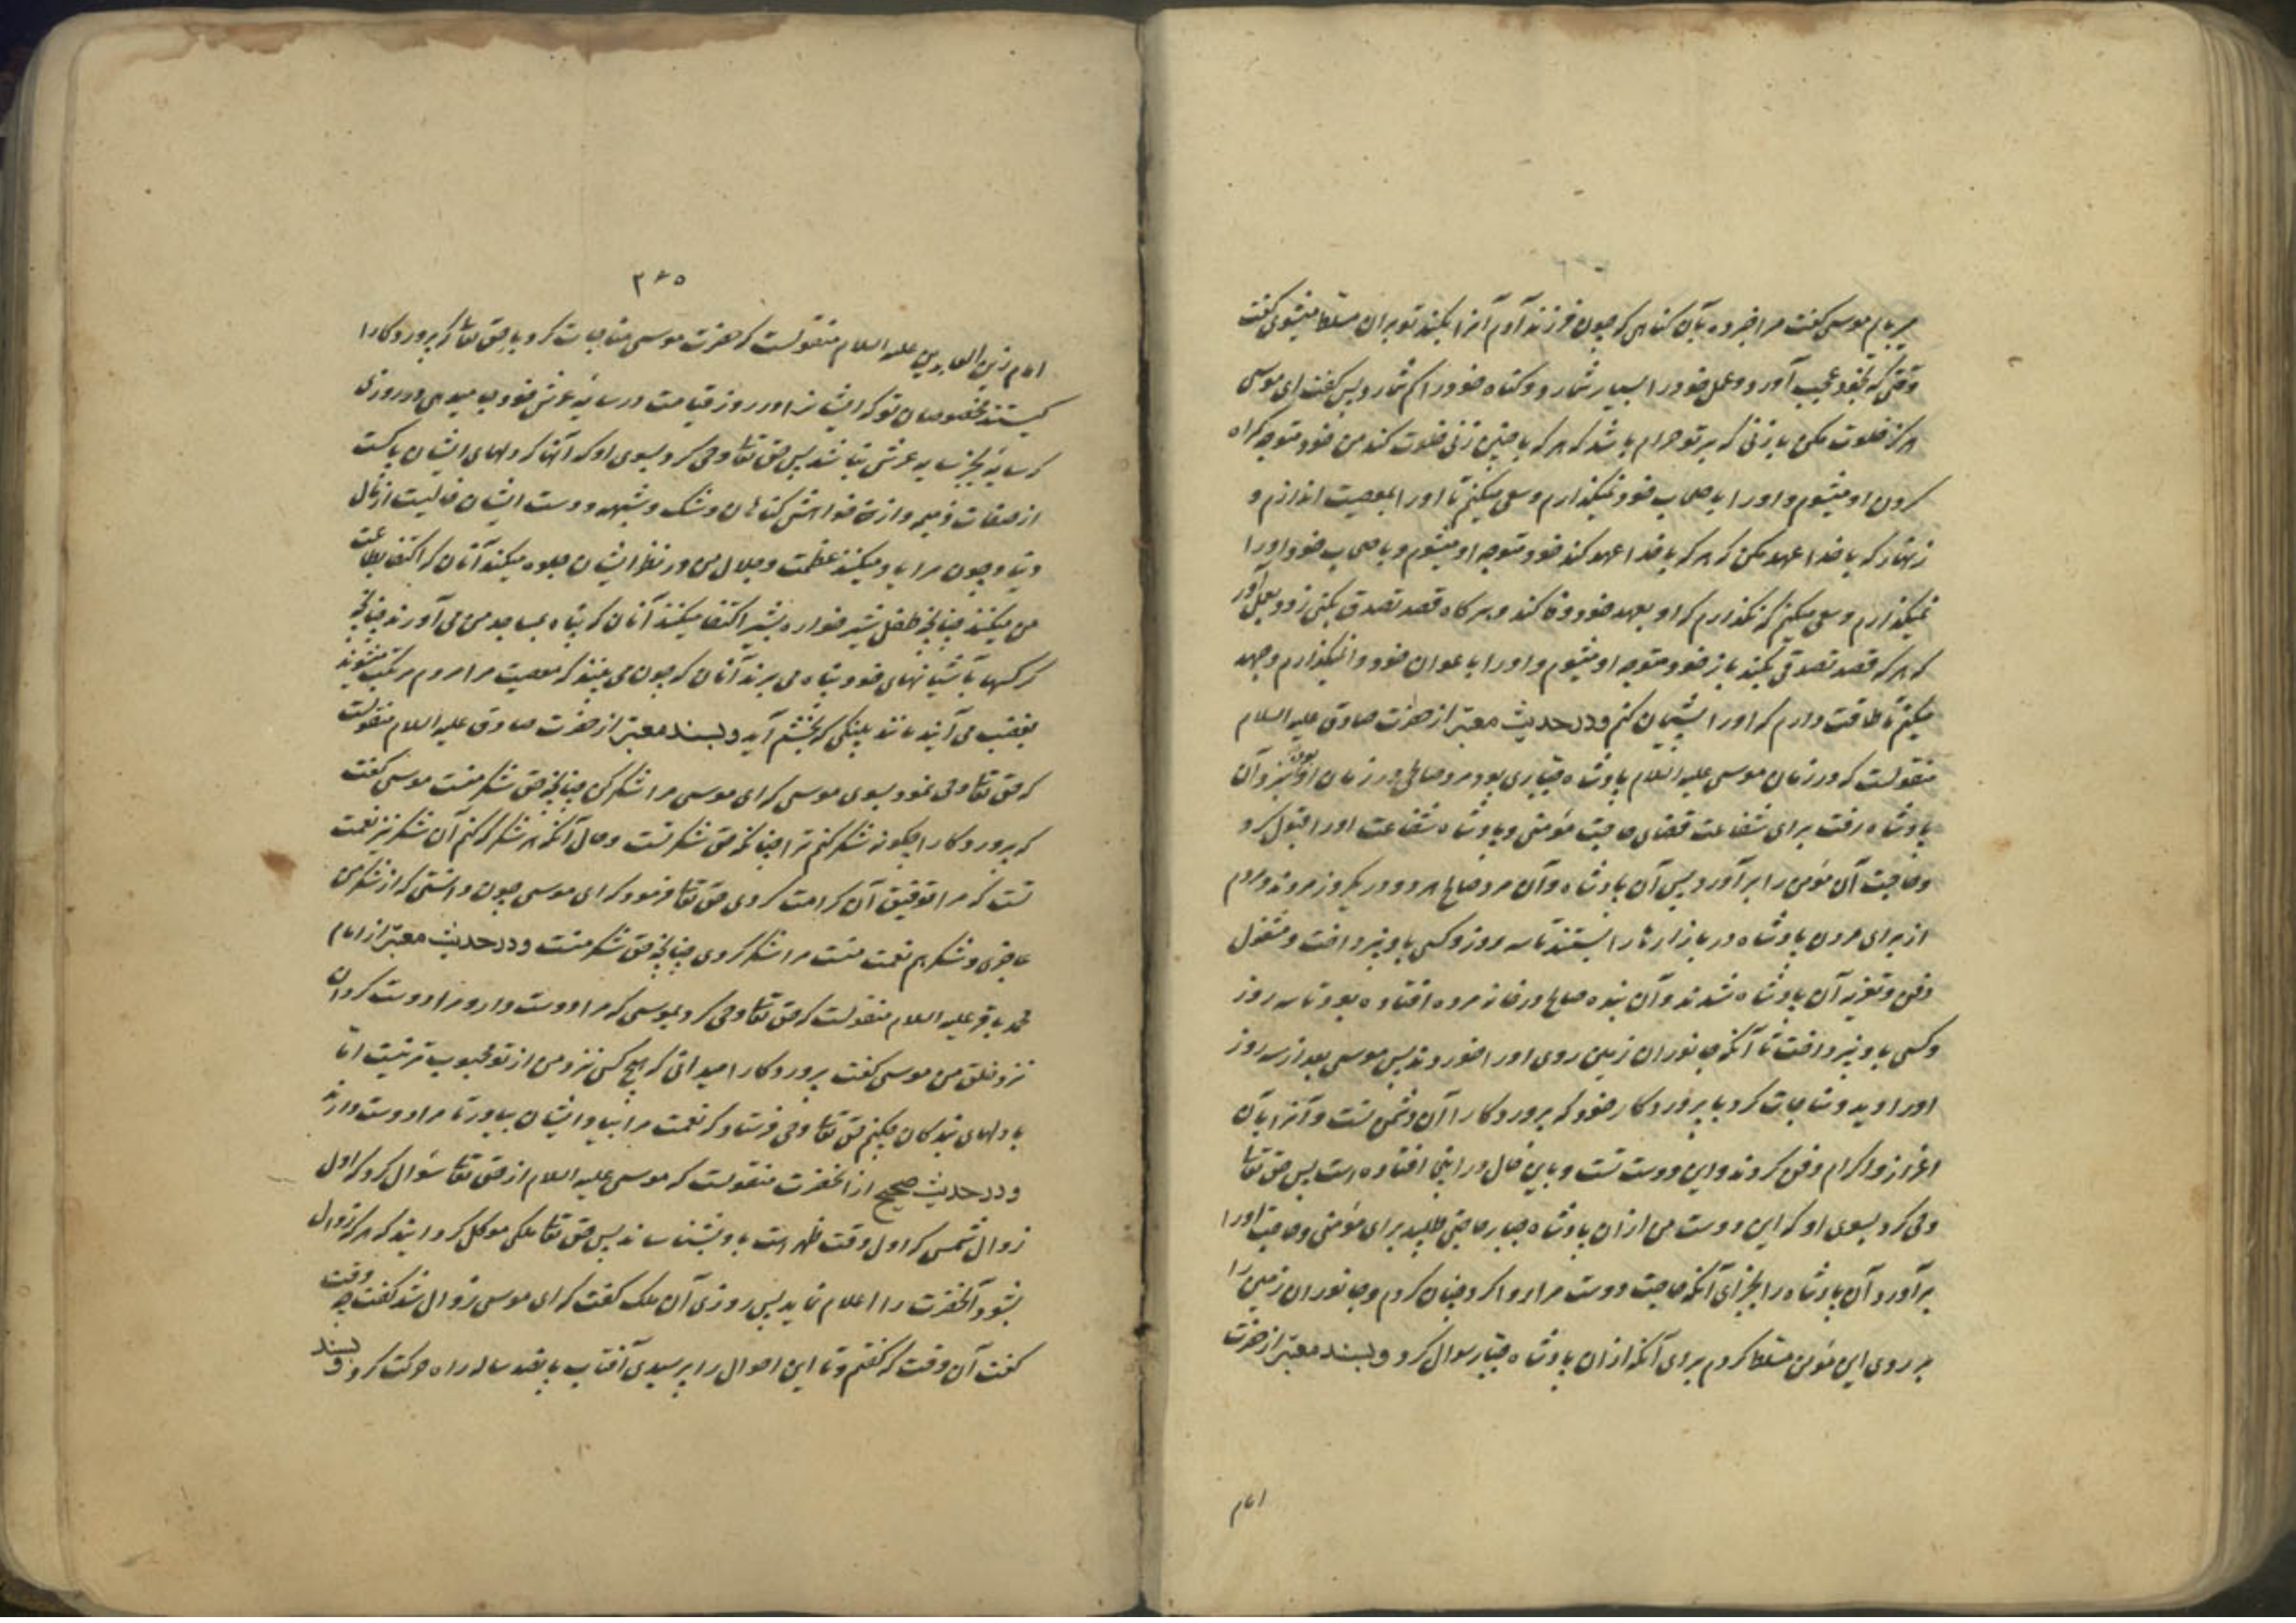 میربایم موسی گفت مرا خبر ده بآن گناهی که چون فرزند آدم آنرا بکند تو بر ان مسلط میشوی گفت
وقتی که بخود عجب آورد و عمل خود را بسیار شمارد و گناه خود را کم شمارد پس گفت ای موسی
هرگز خلوت مکن با زنی که بر تو حرام باشد که هر که با چنین زنی خلوت کند من خود متوجه گمراه
کردن او میشوم و او را باصحاب خود نمیگذارم و سعی میکنم تا او را بمعصیت اندازم و
زنهار که با خدا عهد مکن که هر که با خدا عهد کند خود متوجه او میشوم و باصحاب خود او را
نمیگذارم و سعی میکنم که نگذارم که او بعهد خود وفا کند و هرگاه قصد تصدق بکنی زود بعمل آور
که هر که قصد تصدقی بکند باز خود متوجه او میشوم و او را باعوان خود وا نمیگذارم و جهد
میکنم تا طاقت دارم که او را پشیمان کنم و در حدیث معتبر از حضرت صادق علیه السلام
منقولست که در زمان موسی علیه السلام پادشاه جباری بود و مرد صالحی در زمان او بود نیز و آن
پادشاه رفت برای شفاعت قضای حاجت مؤمنی و پادشاه شفاعت او را قبول کرد
و حاجت آن مؤمن را برآورد پس آن پادشاه و آن مرد صالح هر دو در یکروز مردند و مردم
از برای مردن پادشاه در بازارها را بستند تا سه روز و کسی باو نپرداخت و مشغول
دفن و تعزیه آن پادشاه شدند و آن بنده صالح در خانه مرده افتاده بود تا سه روز
و کسی باو نپرداخت تا آنکه جانوران زمین روی او را خوردند پس موسی بعد از سه روز
او را دید و مناجات کرد با پروردگار خود که پروردگارا آن دشمن تست و آنرا بآن
اعزاز و اکرام دفن کردند و این دوست تست و باین حال در اینجا افتاده است پس حق تعالی
وحی کرد بسوی او که این دوست من از ان پادشاه جبار حاجتی طلبید برای مؤمنی و حاجت او را
برآورد آن پادشاه را بجزای آنکه حاجت دوست مرا روا کرد چنان کردم و جانوران زمین را
بر روی این مؤمن مسلط کردم برای آنکه از ان پادشاه جبار سوال کرد و بسند معتبر از حضرت
امام
۳۶۵
امام زین العابدین علیه السلام منقولست که حضرت موسی مناجات کرد با حق تعالی که پروردگارا
کیستند مخصوصان تو که ایشانرا در روز قیامت در سایه عرش خود جا میدهی در روزی
که سایۀ بجز سایه عرش نباشد پس حق تعالی وحی کرد بسوی او که آنها که دلهای ایشان پاکست
از صفات ذمیمه و از خواهش گناهان و شک و شبهه و دست ایشان خالیست از مال
دنیا و چون مرا یاد میکنند عظمت و جلال من در نظر ایشان جلوه میکند آنان که اکتفا بطاعت
من میکنند چنانچه طفل شیر خواره بشیر اکتفا میکند آنان که پناه بمساجد من می آورند چنانچه
کرکسها بآشیانهای خود پناه می برند آنان که چون می بینند که معصیت مرا مردم مرتکب میشوند
بغضب می آیند مانند پلنگی که بخشم آید و بسند معتبر از حضرت صادق علیه السلام منقولست
که حق تعالی وحی نمود بسوی موسی که ای موسی مرا شکر کن چنانچه حق شکر منست موسی گفت
که پروردگارا چگونه شکر کنم ترا چنانکه حق شکر تست و حال آنکه هر شکر که کنم آن شکر نیز نعمت
تست که مرا توفیق آن کرامت کردی حق تعالی فرمود که ای موسی چون دانستی که از شکر من
عاجزی و شکر هم نعمت منست مرا شکر کردی چنانچه حق شکر منست و در حدیث معتبر از امام
محمد باقر علیه السلام منقولست که حق تعالی وحی کرد بموسی که مرا دوست دار و مرا دوست گردان
نزد خلق من موسی گفت پروردگارا میدانی که هیچ کس نزد من از تو محبوب تر نیست اما
با دلهای بندگان چکنم حق تعالی وحی فرستاد که نعمت مرا بیاد ایشان بیاور تا مرا دوست دارند
و در حدیث صحیح از آنحضرت منقولست که موسی علیه السلام از حق تعالی سؤال کرد که اول
زوال شمس که اول وقت ظهر است باو بشناساند پس حق تعالی ملکی موکل گردانید که هرگه زوال
بشود آنحضرت را اعلام نماید پس روزی آن ملک گفت که ای موسی زوال شد گفت چه وقت
گفت آن وقت که گفتم و تا این احوال را پرسیدی آفتاب پانصد ساله راه حرکت کرد و بسند